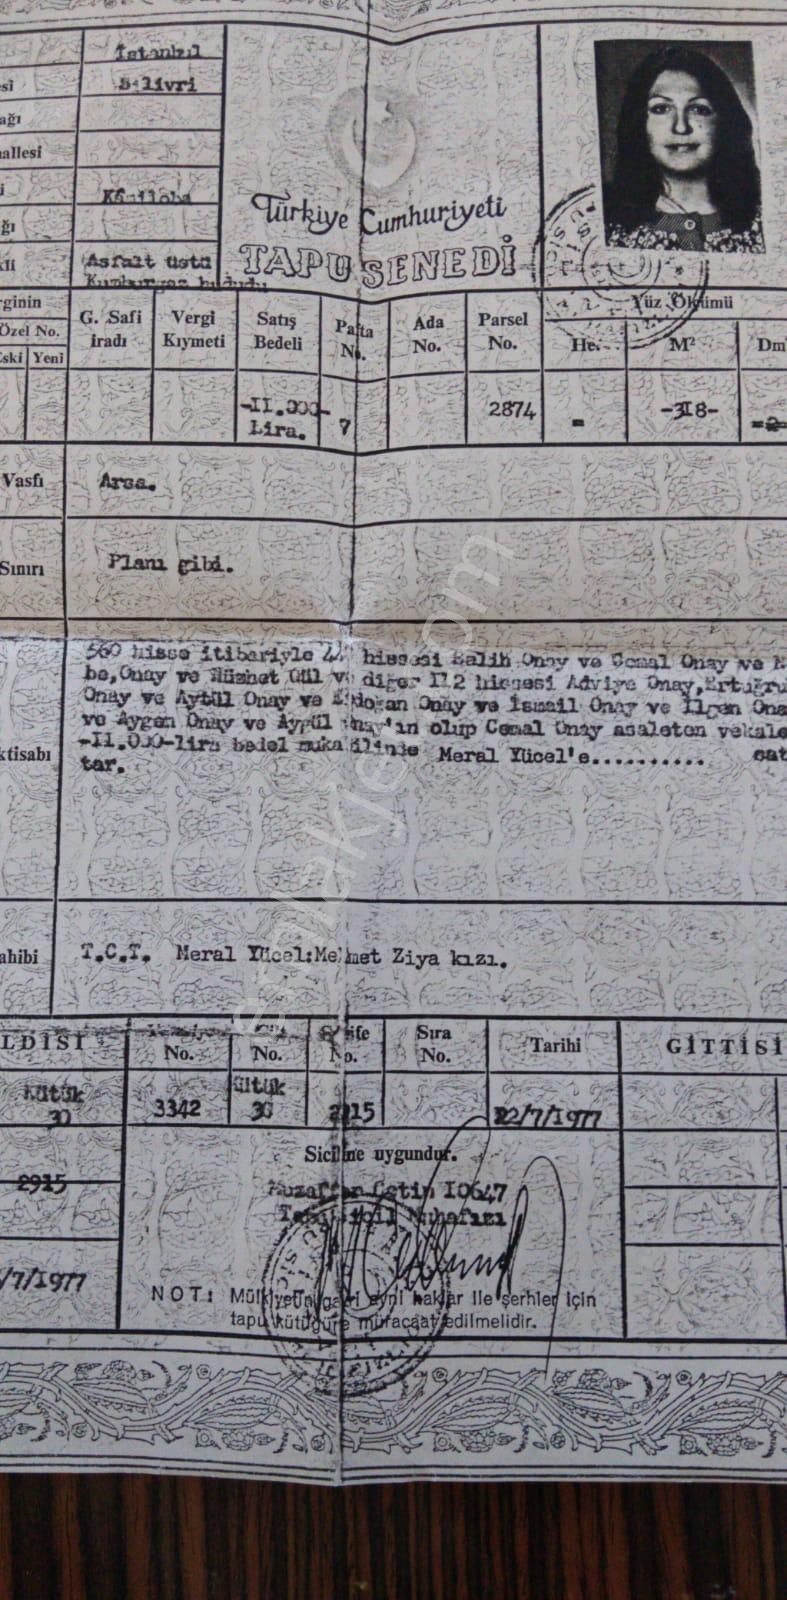 İstanbul
Silivri
allesi
Asfalt üstü
Kumburgaz hududu
Türkiye Cumhuriyeti
TAPU SENEDİ
rginin
Özel No.
Eski Yeni
G. Safi iradı
Vergi Kıymeti
Satış Bedeli
Pafta No.
Ada No.
Parsel No.
Yüz Ölçümü
He.
M²
Dm
-II.000-
Lira.
7
2874
-
-3I8-
Vasfı
Arsa.
Sınırı
Planı gibi.
560 hisse itibariyle hissesi Salih Onay ve Cemal Onay ve
be,Onay ve Nüzhet Gül ve diğer II2 hissesi Adviye Onay,Ertuğru
Onay ve Aytül Onay ve Erdoğan Onay ve İsmail Onay ve İlgen Ona
ve Aygen Onay ve Aygül Onay'ın olup Cemal Onay asaleten vekale
-II.000-lira bedel mukabilinde Meral Yücel'e.......... sat
tar.
ktisabı
ahibi
T.C.T. Meral Yücel:Mehmet Ziya kızı.
LDİSİ
No.
No.
Sahife No.
Sıra No.
Tarihi
GİTTİSİ
Kütük
30
3342
Kütük
30
2915
22/7/1977
Siciline uygundur.
2915
Muzaffer Çetin I0647
Tapu Sicil Muhafızı
/7/1977
NOT: Mülkiyetin gayri ayni haklar ile şerhler için
tapu kütüğüne müracaat edilmelidir.